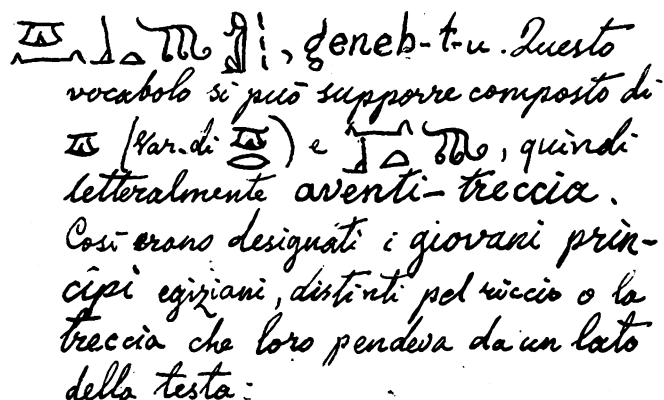 , geneb-t-u. Questo
vocabolo si può supporre composto di
(Var. di ) e , quindi
letteralmente aventi-treccia.
Così erano designati i giovani prin-
cipi egiziani, distinti pel riccio o la
treccia che loro pendeva da un lato
della testa: